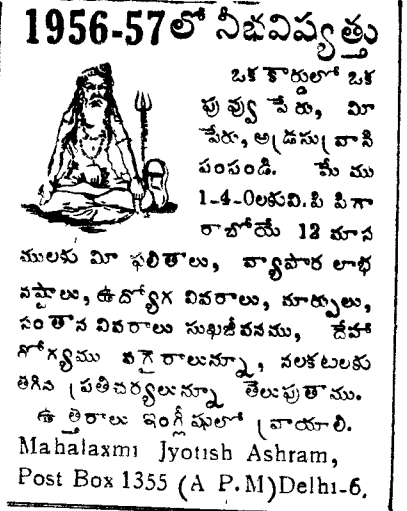 1956-57లో నీభవిష్యత్తు
ఒక కార్డులో ఒక
పువ్వు పేరు, మీ
పేరు, అడ్రసు వ్రాసి
పంపండి. మేము
1-4-0లకువి.పి పిగా
రాబోయే 12 మాస
ములకు మీ ఫలితాలు, వ్యాపార లాభ
నష్టాలు, ఉద్యోగ వివరాలు, మార్పులు,
సంతాన వివరాలు సుఖజీవనము, దేహా
గోగ్యము వగైరాలున్నూ, నలకటలకు
తగిన ప్రతిచర్యలున్నూ తెలుపుతాము.
ఉత్తిరాలు ఇంగ్లీషులో వ్రాయాలి.
Mahalaxmi Jyotish Ashram,
Post Box 1355 (A P.M) Delhi-6.